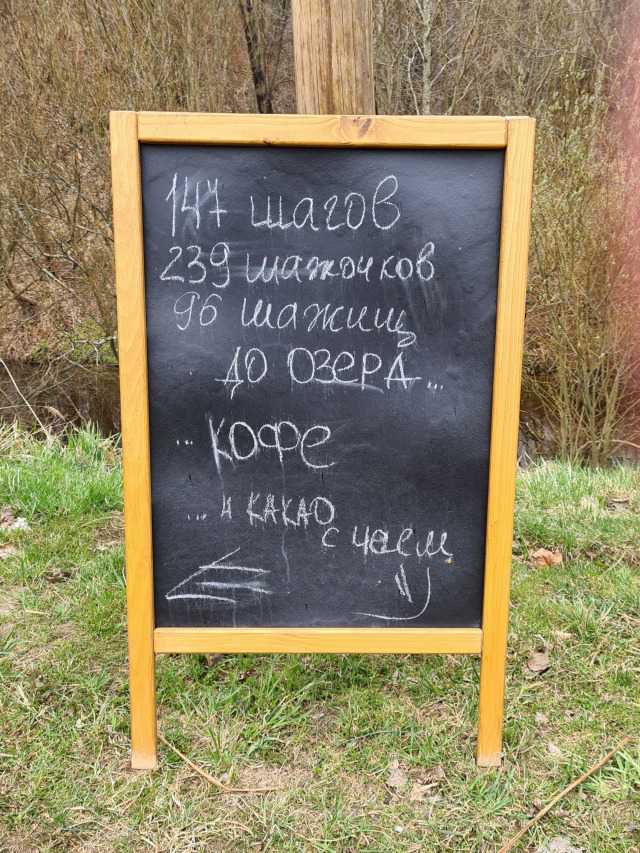 147 шагов
239 шажочков
96 шажищ
до озера...
... кофе
... и какао
с чаем